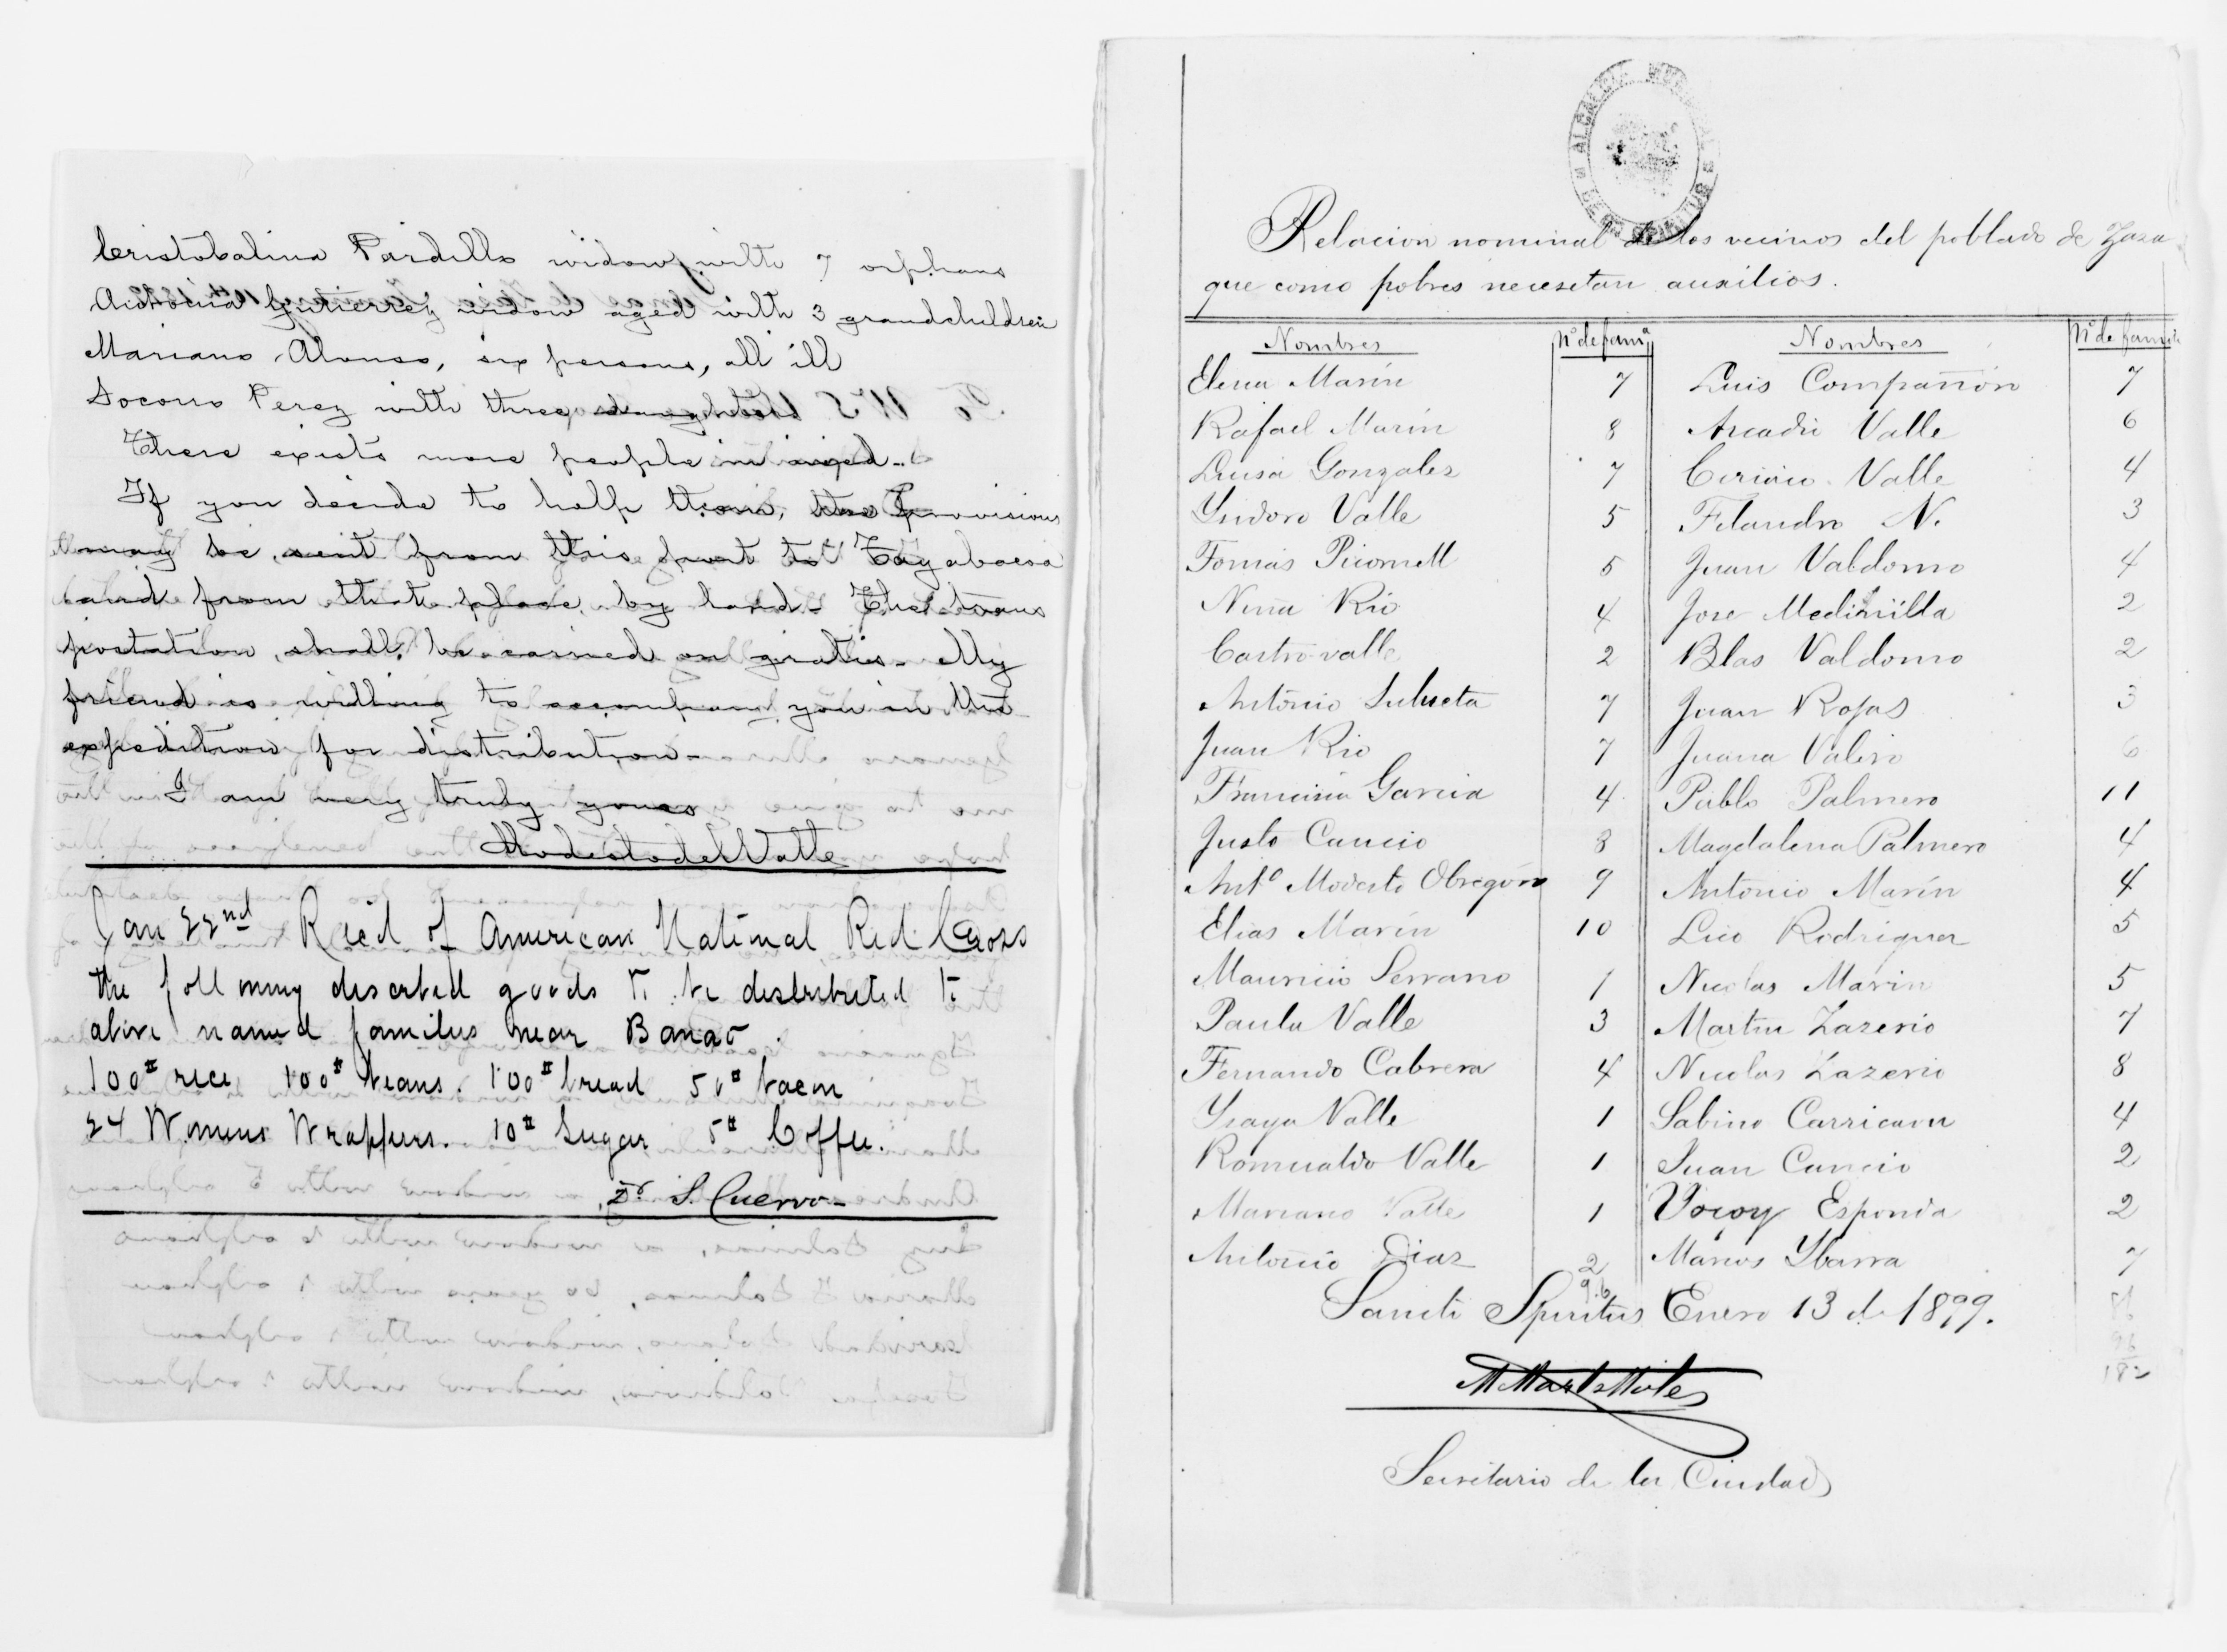 Cristobalina Pardillo widow, with 7 orphans
Antonia Gutierrez widow aged with 3 grandchildren
Mariano Alonso, six persons, all ill
Socorro Perez with three daughters
There exists more people in need.
If you decide to help them, the provisions
may be sent from this port to Tayabacoa
and from that place by land. The trans
portation shall be carried on gratis. My
friend is willing to accompany you in the
expedition for distribution.
I am very truly yours
Modesto del Valle
Jan 22nd Rec'd of American National Red Cross
the following described goods to be distributed to
above named families near Banao.
100# rice 100# beans. 100# bread 50# bacon
24 Womens Wrappers. 10# Sugar 5# Coffee.
Dr S. Cuervo
Relacion nominal de los vecinos del poblado de Zaza
que como pobres necesitan auxilios.
Nombres Nº de fama Nombres Nº de famil
Elena Marín 7 Luis Compañón 7
Rafael Marín 8 Arcadio Valle 6
Luisa Gonzalez 7 Valle 4
Ysidoro Valle 5 Filandro N. 3
Tomás Picornell 5 Juan Valdomo 4
Nina Rio 4 Jose Medinilla 2
Castro valle 2 Blas Valdomo 2
Antonio Sulueta 7 Juan Rojas 3
Juan Rio 7 Juana Valero 6
Francisca Garcia 4 Pablo Palmero 11
Justo Cancio 8 Magdalena Palmero 4
Antº Modesto Obregón 9 Antonio Marín 4
Elias Marín 10 Lico Rodriguez 5
Mauricio Serrano 1 Nicolas Marin 5
Paula Valle 3 Martin Lazerio 7
Fernando Cabrera 4 Nicolas Lazerio 8
Yraya Valle 1 Sabino Carricavu 4
Romualdo Valle 1 Juan Cancio 2
Mariano Valle 1 Esponda 2
Antonio Diaz 2 Marcos Ybarra 7
96
Sancti Spiritus Enero 13 de 1899.
96
182
Secretario de la Ciudad